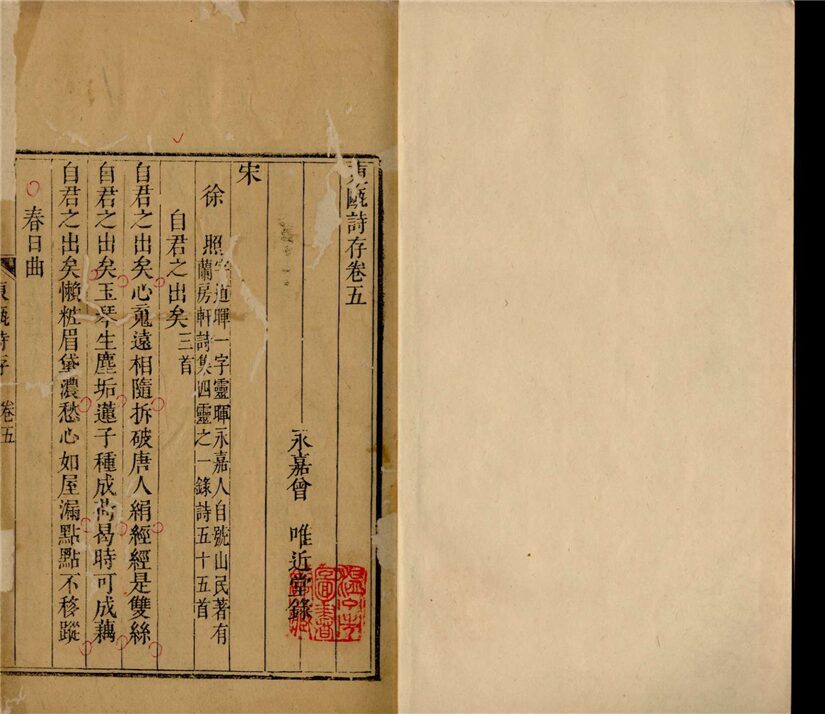 東甌詩存卷五
永嘉曾 唯近堂錄
宋
徐 照 字道暉一字靈暉永嘉人自號山民著有
蘭房軒詩集四靈之一錄詩五十五首
自君之出矣 三首
自君之出矣心䰟遠相隨拆破唐人絹經經是雙絲
自君之出矣玉琴生塵垢蓮子種成荷曷時可成藕
自君之出矣懶粧眉黛濃愁心如屋漏點點不移蹤
春日曲
東甌詩存 卷五